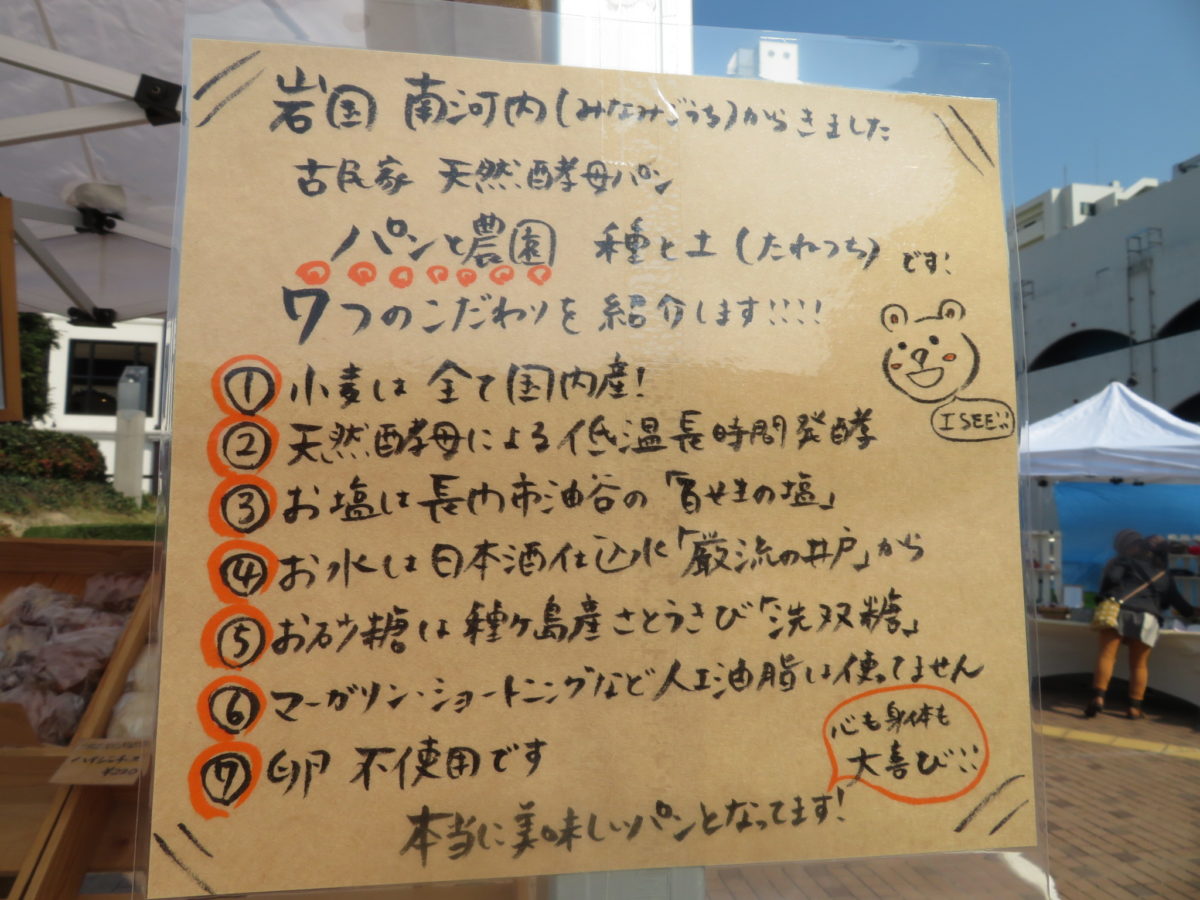 岩国 南河内(みなみごうち)からきました
古民家 天然酵母パン
パンと農園 種と土(たねつち)です!
7つのこだわりを紹介します!!!!
①小麦は全て国内産!
②天然酵母による低温長時間発酵
③お塩は長門市油谷の「百姓の塩」
④お水は日本酒仕込水「厳流の井戸」から
⑤お砂糖は種ヶ島産さとうきび「洗双糖」
⑥マーガリン・ショートニングなど人工油脂は使ってません
⑦卵 不使用です
本当に美味しいパンとなってます!
I SEE!!
心も身体も
大喜び!!
¥220